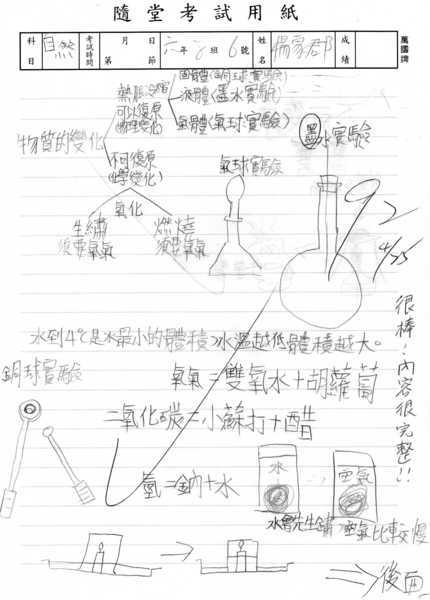 隨堂考試用紙
萬國牌
科目 自然 考試時間 月 日 第 節 六年 班 6號 姓名 成績
固體(銅球實驗)
熱脹冷縮
液體(墨水實驗)
可以復原
(物理變化)
氣體(氣球實驗)
物質的變化
不可復原
(化學變化)
氣球實驗
墨水實驗
氧化
生鏽
須要氧氣
燃燒
須要氧氣
92
4/25
很棒!內容很完整!!
水到4℃是水最小的體積,水溫越低體積越大。
銅球實驗
氧氣=雙氧水+胡蘿蔔
二氧化碳=小蘇打+醋
氫=鈉+水
水
空氣
水會先生鏽
空氣比較慢
⇒後面